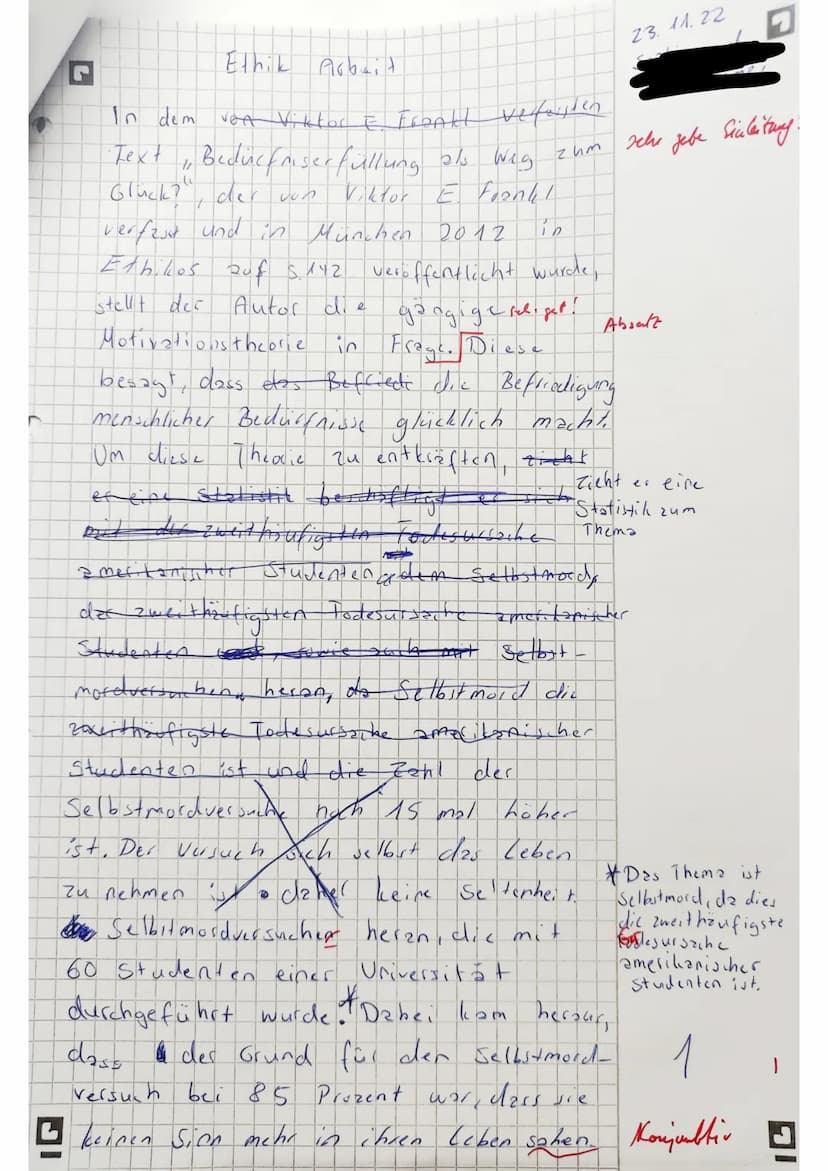 23.11.22
Ethik Arbeit
In dem von Viktor E. Frankl verfassten
sehr gute Einleitung!
Text „Bedürfniserfüllung als Weg zum
Glück?", der von Viktor E. Frankl
verfasst und in München 2012 in
Ethikos auf S.142 veröffentlicht wurde,
stellt der Autor die gängige sehr gut!
Absatz
Motivationstheorie in Frage. Diese
besagt, dass das Befriedi die Befriedigung
menschlicher Bedürfnisse glücklich macht.
Um diese Theorie zu entkräften, zieht
zieht er eine
Statistik zum
Thema
er eine Statistik beschäftigt er sich
mit der zweithäufigsten Todesursache
amerikanischer Studenten, dem Selbstmord,
der zweithäufigsten Todesursache amerikanischer
Studenten und, sowie auch mit Selbst-
mordversuchen, heran, da Selbstmord die
zweithäufigste Todesursache amerikanischer
Studenten ist und die Zahl der
Selbstmordversuche noch 15 mal höher
ist. Der Versuch sich selbst das Leben
zu nehmen ist daher keine Seltenheit.
* Das Thema ist
Selbstmord, da dies
die zweithäufigste
Todesursache
amerikanischer
Studenten ist.
Selbstmordversuchen heran, die mit
60 Studenten einer Universität
durchgeführt wurde.* Dabei kam heraus,
dass der Grund für den Selbstmord-
versuch bei 85 Prozent war, dass sie
keinen Sinn mehr in ihren Leben sahen.
1
I
Konjunktiv